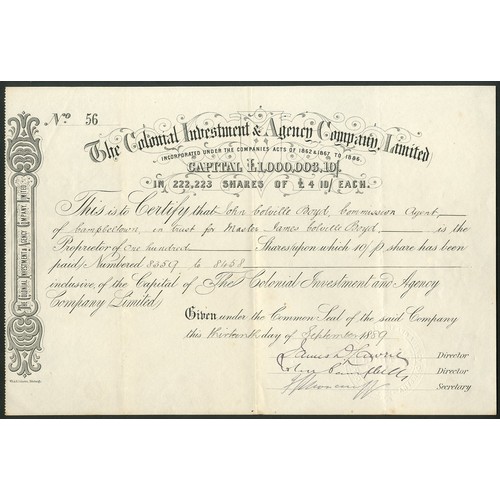 No 56
The Colonial Investment & Agency Company, Limited
INCORPORATED UNDER THE COMPANIES ACTS OF 1862 & 1867 TO 1886.
CAPITAL £1,000,003,10/
IN 222,223 SHARES OF £4 10/ EACH.
This is to Certify that John Colville Boyd, Commission Agent,
of Campbeltown, in trust for Master James Colville Boyd, is the
Proprietor of One hundred Shares upon which 10/ p share has been
paid, Numbered 8359 to 8458
inclusive, of the Capital of The Colonial Investment and Agency
Company Limited.
Given under the Common Seal of the said Company
this thirteenth day of September 1889
Director
Director
Secretary
THE COLONIAL INVESTMENT & AGENCY COMPANY, LIMITED.